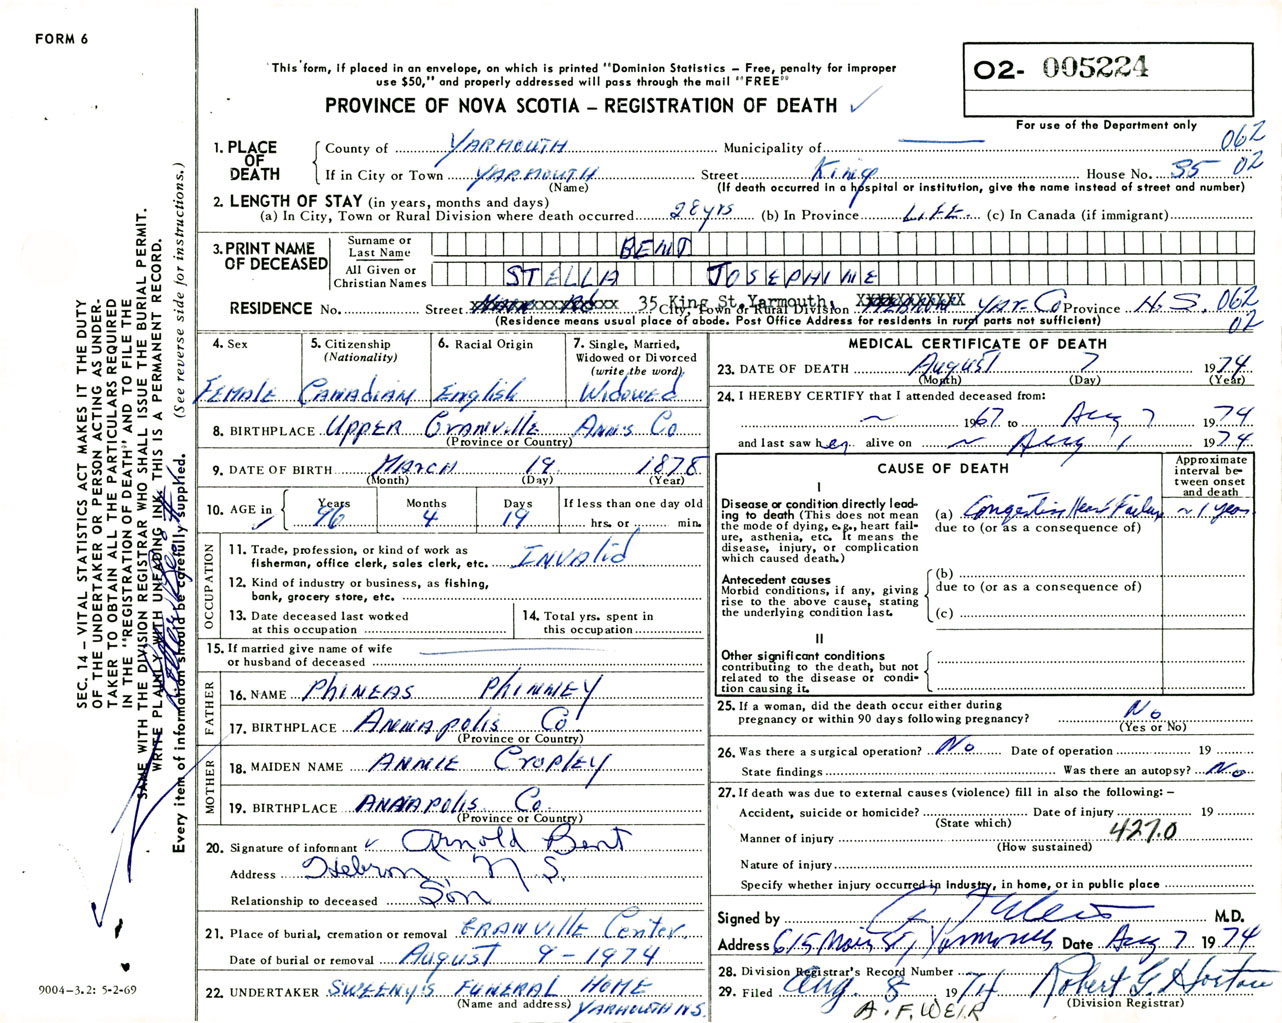 FORM 6
This form, if placed in an envelope, on which is printed "Dominion Statistics – Free, penalty for improper
use $50," and properly addressed will pass through the mail "FREE"
PROVINCE OF NOVA SCOTIA – REGISTRATION OF DEATH ✓
O2- 005224
For use of the Department only
062
02
1. PLACE OF DEATH
County of YARMOUTH Municipality of —
If in City or Town YARMOUTH Street King House No. 35
(Name) (If death occurred in a hospital or institution, give the name instead of street and number)
2. LENGTH OF STAY (in years, months and days)
(a) In City, Town or Rural Division where death occurred 28 yrs (b) In Province LIFE (c) In Canada (if immigrant)
3. PRINT NAME OF DECEASED
Surname or Last Name BENT
All Given or Christian Names STELLA JOSEPHINE
RESIDENCE No. Street 35 King St. Yarmouth, City, Town or Rural Division YAR. Co Province N.S. 062
02
(Residence means usual place of abode. Post Office Address for residents in rural parts not sufficient)
4. Sex
Female
5. Citizenship
(Nationality)
Canadian
6. Racial Origin
English
7. Single, Married,
Widowed or Divorced
(write the word)
Widowed
8. BIRTHPLACE Upper Granville Ann's Co
(Province or Country)
9. DATE OF BIRTH MARCH 19 1878
(Month) (Day) (Year)
10. AGE in ✓
Years 96
Months 4
Days 19
If less than one day old
hrs. or min.
OCCUPATION
11. Trade, profession, or kind of work as
fisherman, office clerk, sales clerk, etc. INValid
12. Kind of industry or business, as fishing,
bank, grocery store, etc.
13. Date deceased last worked
at this occupation
14. Total yrs. spent in
this occupation
15. If married give name of wife
or husband of deceased
FATHER
16. NAME PHINEAS PHINNEY
17. BIRTHPLACE ANNAPOLIS Co.
(Province or Country)
MOTHER
18. MAIDEN NAME ANNIE CROPLEY
19. BIRTHPLACE ANNAPOLIS Co.
(Province or Country)
20. Signature of informant ✓ Arnold Bent
Address Hebron N.S.
Relationship to deceased Son
21. Place of burial, cremation or removal GRANVILLE Center
Date of burial or removal August 9 - 1974
22. UNDERTAKER SWEENY'S FUNERAL HOME
(Name and address) YARMOUTH N.S.
MEDICAL CERTIFICATE OF DEATH
23. DATE OF DEATH August 7 1974
(Month) (Day) (Year)
24. I HEREBY CERTIFY that I attended deceased from:
~ 1967 to Aug 7 1974
and last saw her alive on ~ Aug 1 1974
CAUSE OF DEATH
Approximate interval between onset and death
I
Disease or condition directly leading to death (This does not mean the mode of dying, e.g., heart failure, asthenia, etc. It means the disease, injury, or complication which caused death.)
(a) Congestive Heart Failure ~ 1 year
due to (or as a consequence of)
Antecedent causes
Morbid conditions, if any, giving rise to the above cause, stating the underlying condition last.
(b)
due to (or as a consequence of)
(c)
II
Other significant conditions
contributing to the death, but not related to the disease or condition causing it.
25. If a woman, did the death occur either during
pregnancy or within 90 days following pregnancy? No
(Yes or No)
26. Was there a surgical operation? No Date of operation 19
State findings Was there an autopsy? No
27. If death was due to external causes (violence) fill in also the following: –
Accident, suicide or homicide? Date of injury 19
(State which)
Manner of injury 427.0
(How sustained)
Nature of injury
Specify whether injury occurred in Industry, in home, or in public place
Signed by M.D.
Address 615 Main St, Yarmouth Date Aug 7 1974
28. Division Registrar's Record Number
29. Filed Aug. 8 1974 Robert G. Horton
(Division Registrar)
A. F. WEIR
SEC. 14 – VITAL STATISTICS ACT MAKES IT THE DUTY
OF THE UNDERTAKER OR PERSON ACTING AS UNDER-
TAKER TO OBTAIN ALL THE PARTICULARS REQUIRED
IN THE "REGISTRATION OF DEATH" AND TO FILE THE
SAME WITH THE DIVISION REGISTRAR WHO SHALL ISSUE THE BURIAL PERMIT.
WRITE PLAINLY WITH UNFADING INK. THIS IS A PERMANENT RECORD.
Every item of information should be carefully supplied. (See reverse side for instructions.)
9004-3.2: 5-2-69